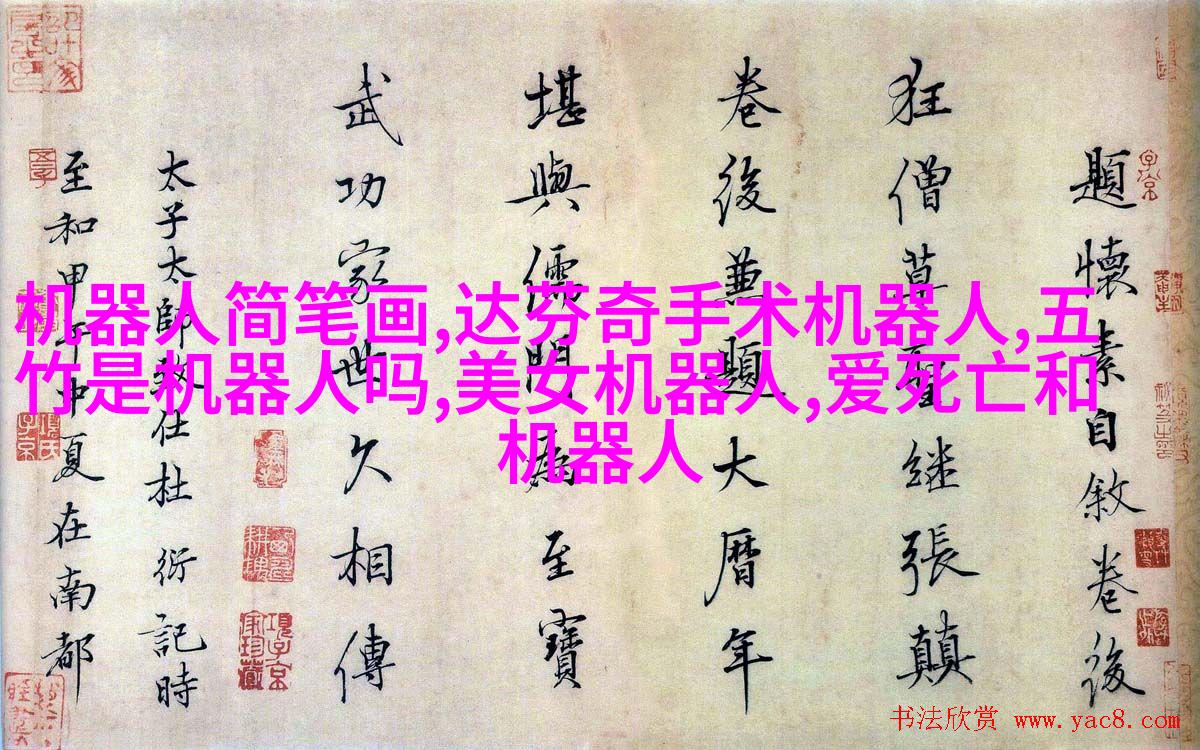 題懷素自敘卷後
狂僧草聖继張顛
卷後兼題大曆年
堪與儒門為至寶
武功家世久相傳
太子太師致仕杜衍記時
至和甲午中夏在南都
机器人简笔画,达芬奇手术机器人,五
竹是机器人吗,美女机器人,爱死亡和
机器人
項子京
家珍藏
书法欣赏 www.yac8.com